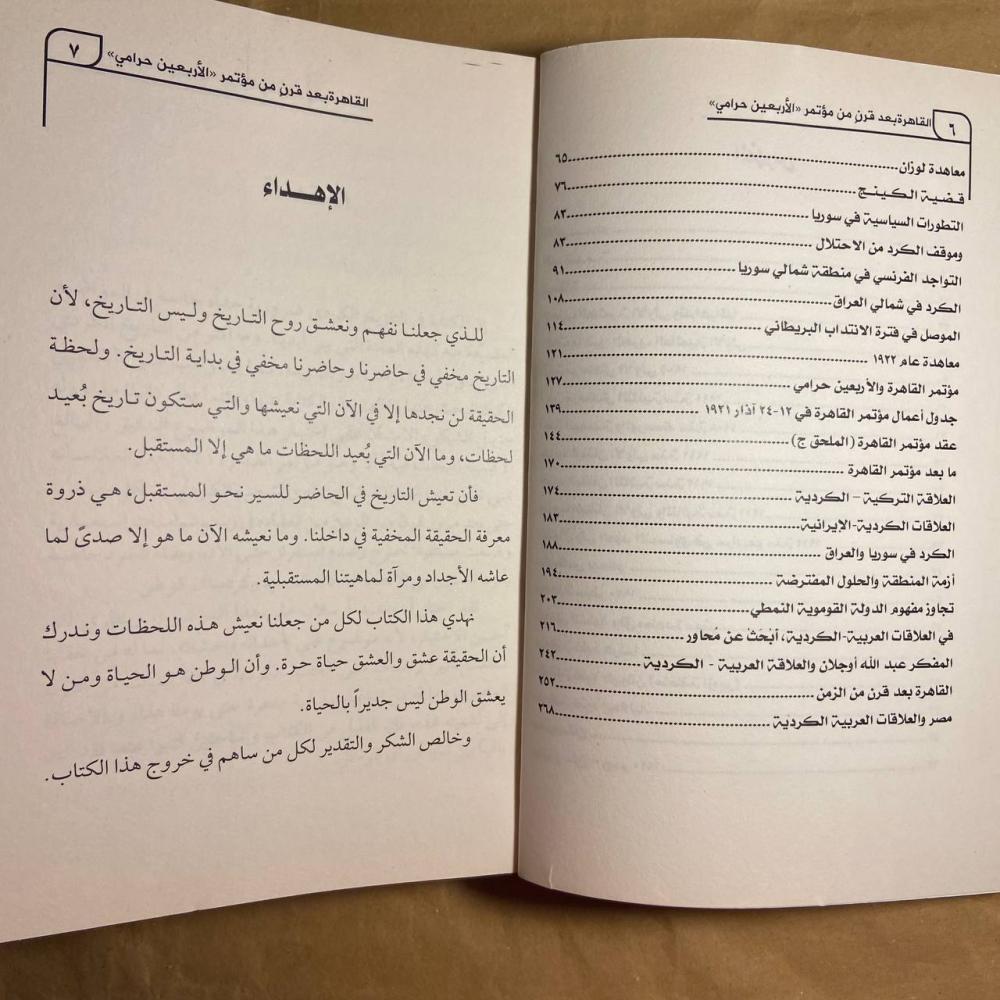 ٦ القاهرة بعد قرن من مؤتمر «الأربعين حرامي»
معاهدة لوزان ٦٥
قضية الكينج ٧٦
التطورات السياسية في سوريا ٨٣
وموقف الكرد من الاحتلال ٨٣
التواجد الفرنسي في منطقة شمالي سوريا ٩١
الكرد في شمالي العراق ١٠٨
الموصل في فترة الانتداب البريطاني ١١٤
معاهدة عام ١٩٢٢ ١٢١
مؤتمر القاهرة والأربعين حرامي ١٢٧
جدول أعمال مؤتمر القاهرة في ١٢-٢٤ آذار ١٩٢١ ١٣٩
عقد مؤتمر القاهرة (الملحق ج) ١٤٤
ما بعد مؤتمر القاهرة ١٧٠
العلاقة التركية - الكردية ١٧٤
العلاقات الكردية-الإيرانية ١٨٣
الكرد في سوريا والعراق ١٨٨
أزمة المنطقة والحلول المفترضة ١٩٤
تجاوز مفهوم الدولة القوموية النمطي ٢٠٣
في العلاقات العربية-الكردية، أبْحَثُ عن مُحاور ٢١٦
المفكر عبد الله أوجلان والعلاقة العربية - الكردية ٢٤٢
القاهرة بعد قرن من الزمن ٢٥٢
مصر والعلاقات العربية الكردية ٢٦٨
القاهرة بعد قرنٍ من مؤتمر «الأربعين حرامي» ٧
الإهداء
للذي جعلنا نفهم ونعشق روح التاريخ وليس التاريخ، لأن
التاريخ مخفي في حاضرنا وحاضرنا مخفي في بداية التاريخ. ولحظة
الحقيقة لن نجدها إلا في الآن التي نعيشها والتي ستكون تاريخ بُعيد
لحظات، وما الآن التي بُعيد اللحظات ما هي إلا المستقبل.
فأن تعيش التاريخ في الحاضر للسير نحو المستقبل، هي ذروة
معرفة الحقيقة المخفية في داخلنا. وما نعيشه الآن ما هو إلا صدىً لما
عاشه الأجداد ومرآة لماهيتنا المستقبلية.
نهدي هذا الكتاب لكل من جعلنا نعيش هذه اللحظات وندرك
أن الحقيقة عشق والعشق حياة حرة. وأن الوطن هو الحياة ومن لا
يعشق الوطن ليس جديراً بالحياة.
وخالص الشكر والتقدير لكل من ساهم في خروج هذا الكتاب.